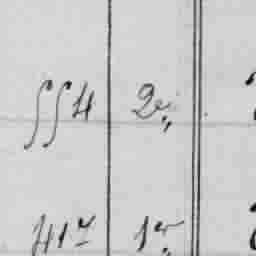 554 2e
417 1r